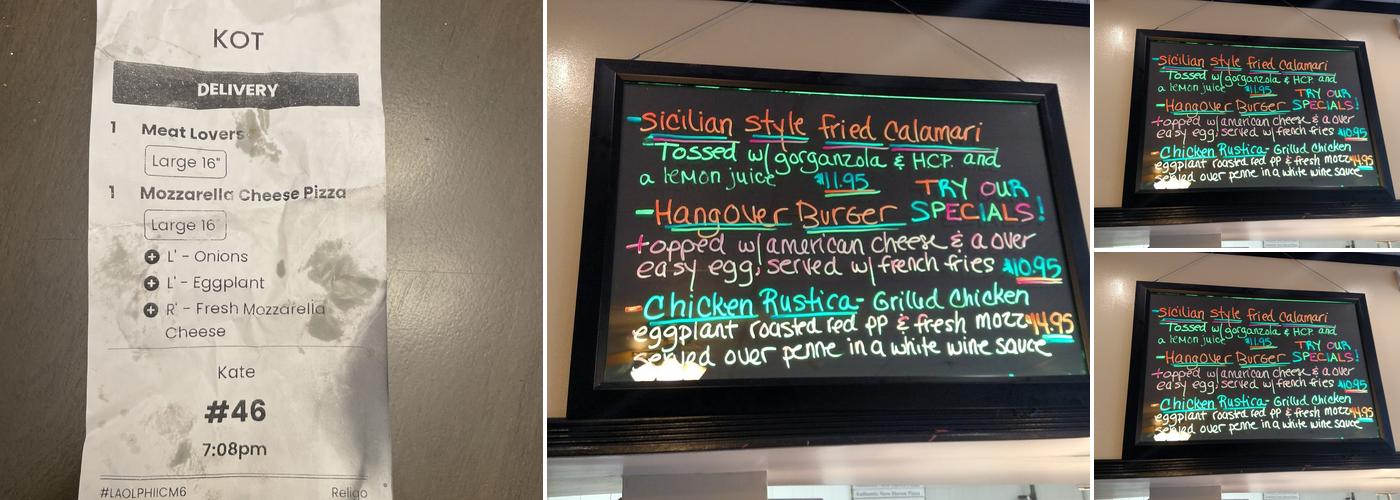 KOT
DELIVERY
1 Meat Lovers
Large 16"
1 Mozzarella Cheese Pizza
Large 16
L' - Onions
L' - Eggplant
R' - Fresh Mozzarella
Cheese
Kate
#46
7:08pm
#LAOLPHIICM6 Religo
-Sicilian Style fried Calamari
Tossed w/ gorganzola & HCP. and
a lemon juice $11.95 TRY OUR
-Hangover Burger SPECIALS!
topped w/ american cheese & a over
easy egg, served w/ french fries $10.95
- Chicken Rustica- Grilled Chicken
eggplant roasted red pp & fresh mozz 14.95
served over penne in a white wine sauce
Authentic New Haven Pizza
-Sicilian Style fried Calamari
Tossed w/ gorganzola & HCP. and
a lemon juice $11.95 TRY OUR
-Hangover Burger SPECIALS!
topped w/ american cheese & a over
easy egg, served w/ french fries $10.95
- Chicken Rustica- Grilled Chicken
eggplant roasted red pp & fresh mozz 14.95
served over penne in a white wine sauce
-Sicilian Style fried Calamari
Tossed w/ gorganzola & HCP. and
a lemon juice $11.95 TRY OUR
-Hangover Burger SPECIALS!
topped w/ american cheese & a over
easy egg, served w/ french fries $10.95
- Chicken Rustica- Grilled Chicken
eggplant roasted red pp & fresh mozz 14.95
served over penne in a white wine sauce